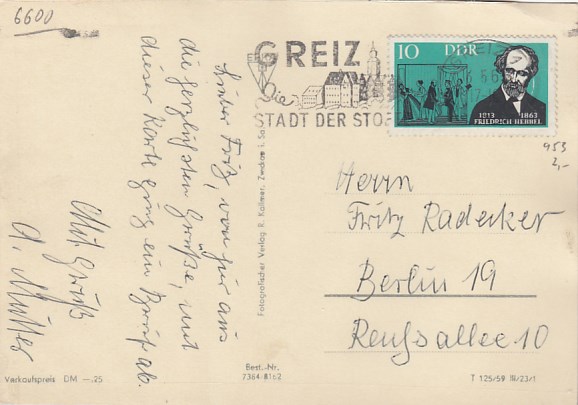 6600
Lieber Fritz, von hier aus
die herzlichsten Grüße, mit
dieser Karte ging ein Brief ab.
Mit Gruß
A. Müller
GREIZ
Die
STADT DER STOF
10 DDR
1813 1863
FRIEDRICH HEBBEL
953
2,-
Herrn
Fritz Radecker
Berlin 19
Reußallee 10
Fotografischer Verlag R. Kallmer, Zwickau i. Sa.
Verkaufspreis DM —.25
Best.-Nr.
7384-8162
T 125/59 III/23/1